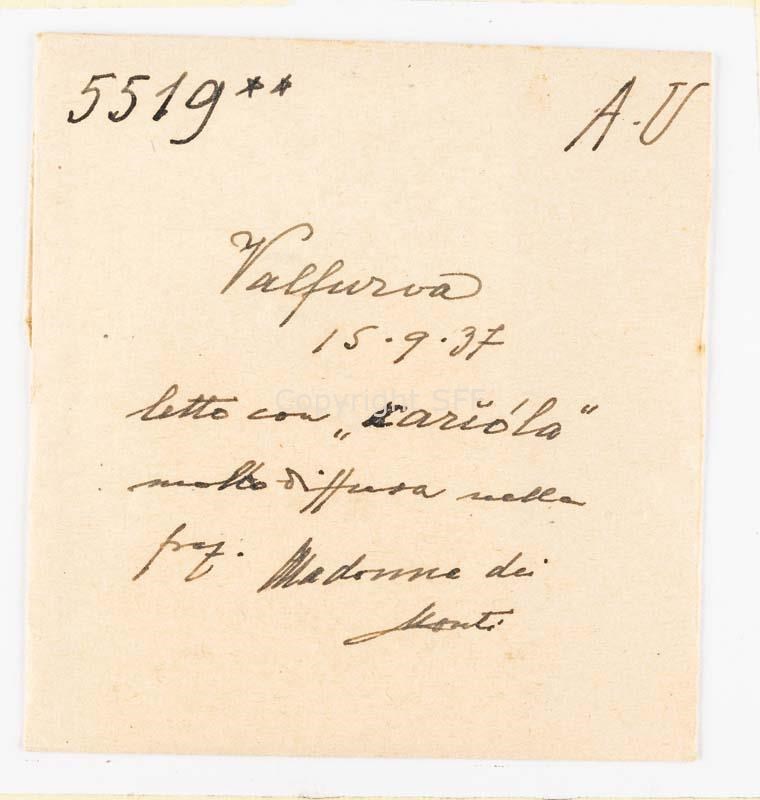 5519** A.U
Valfurva
15.9.37
Copyright SFF
letto con „cariŏ́la"
molto diffusa nella
fraz. Madonna dei
Monti